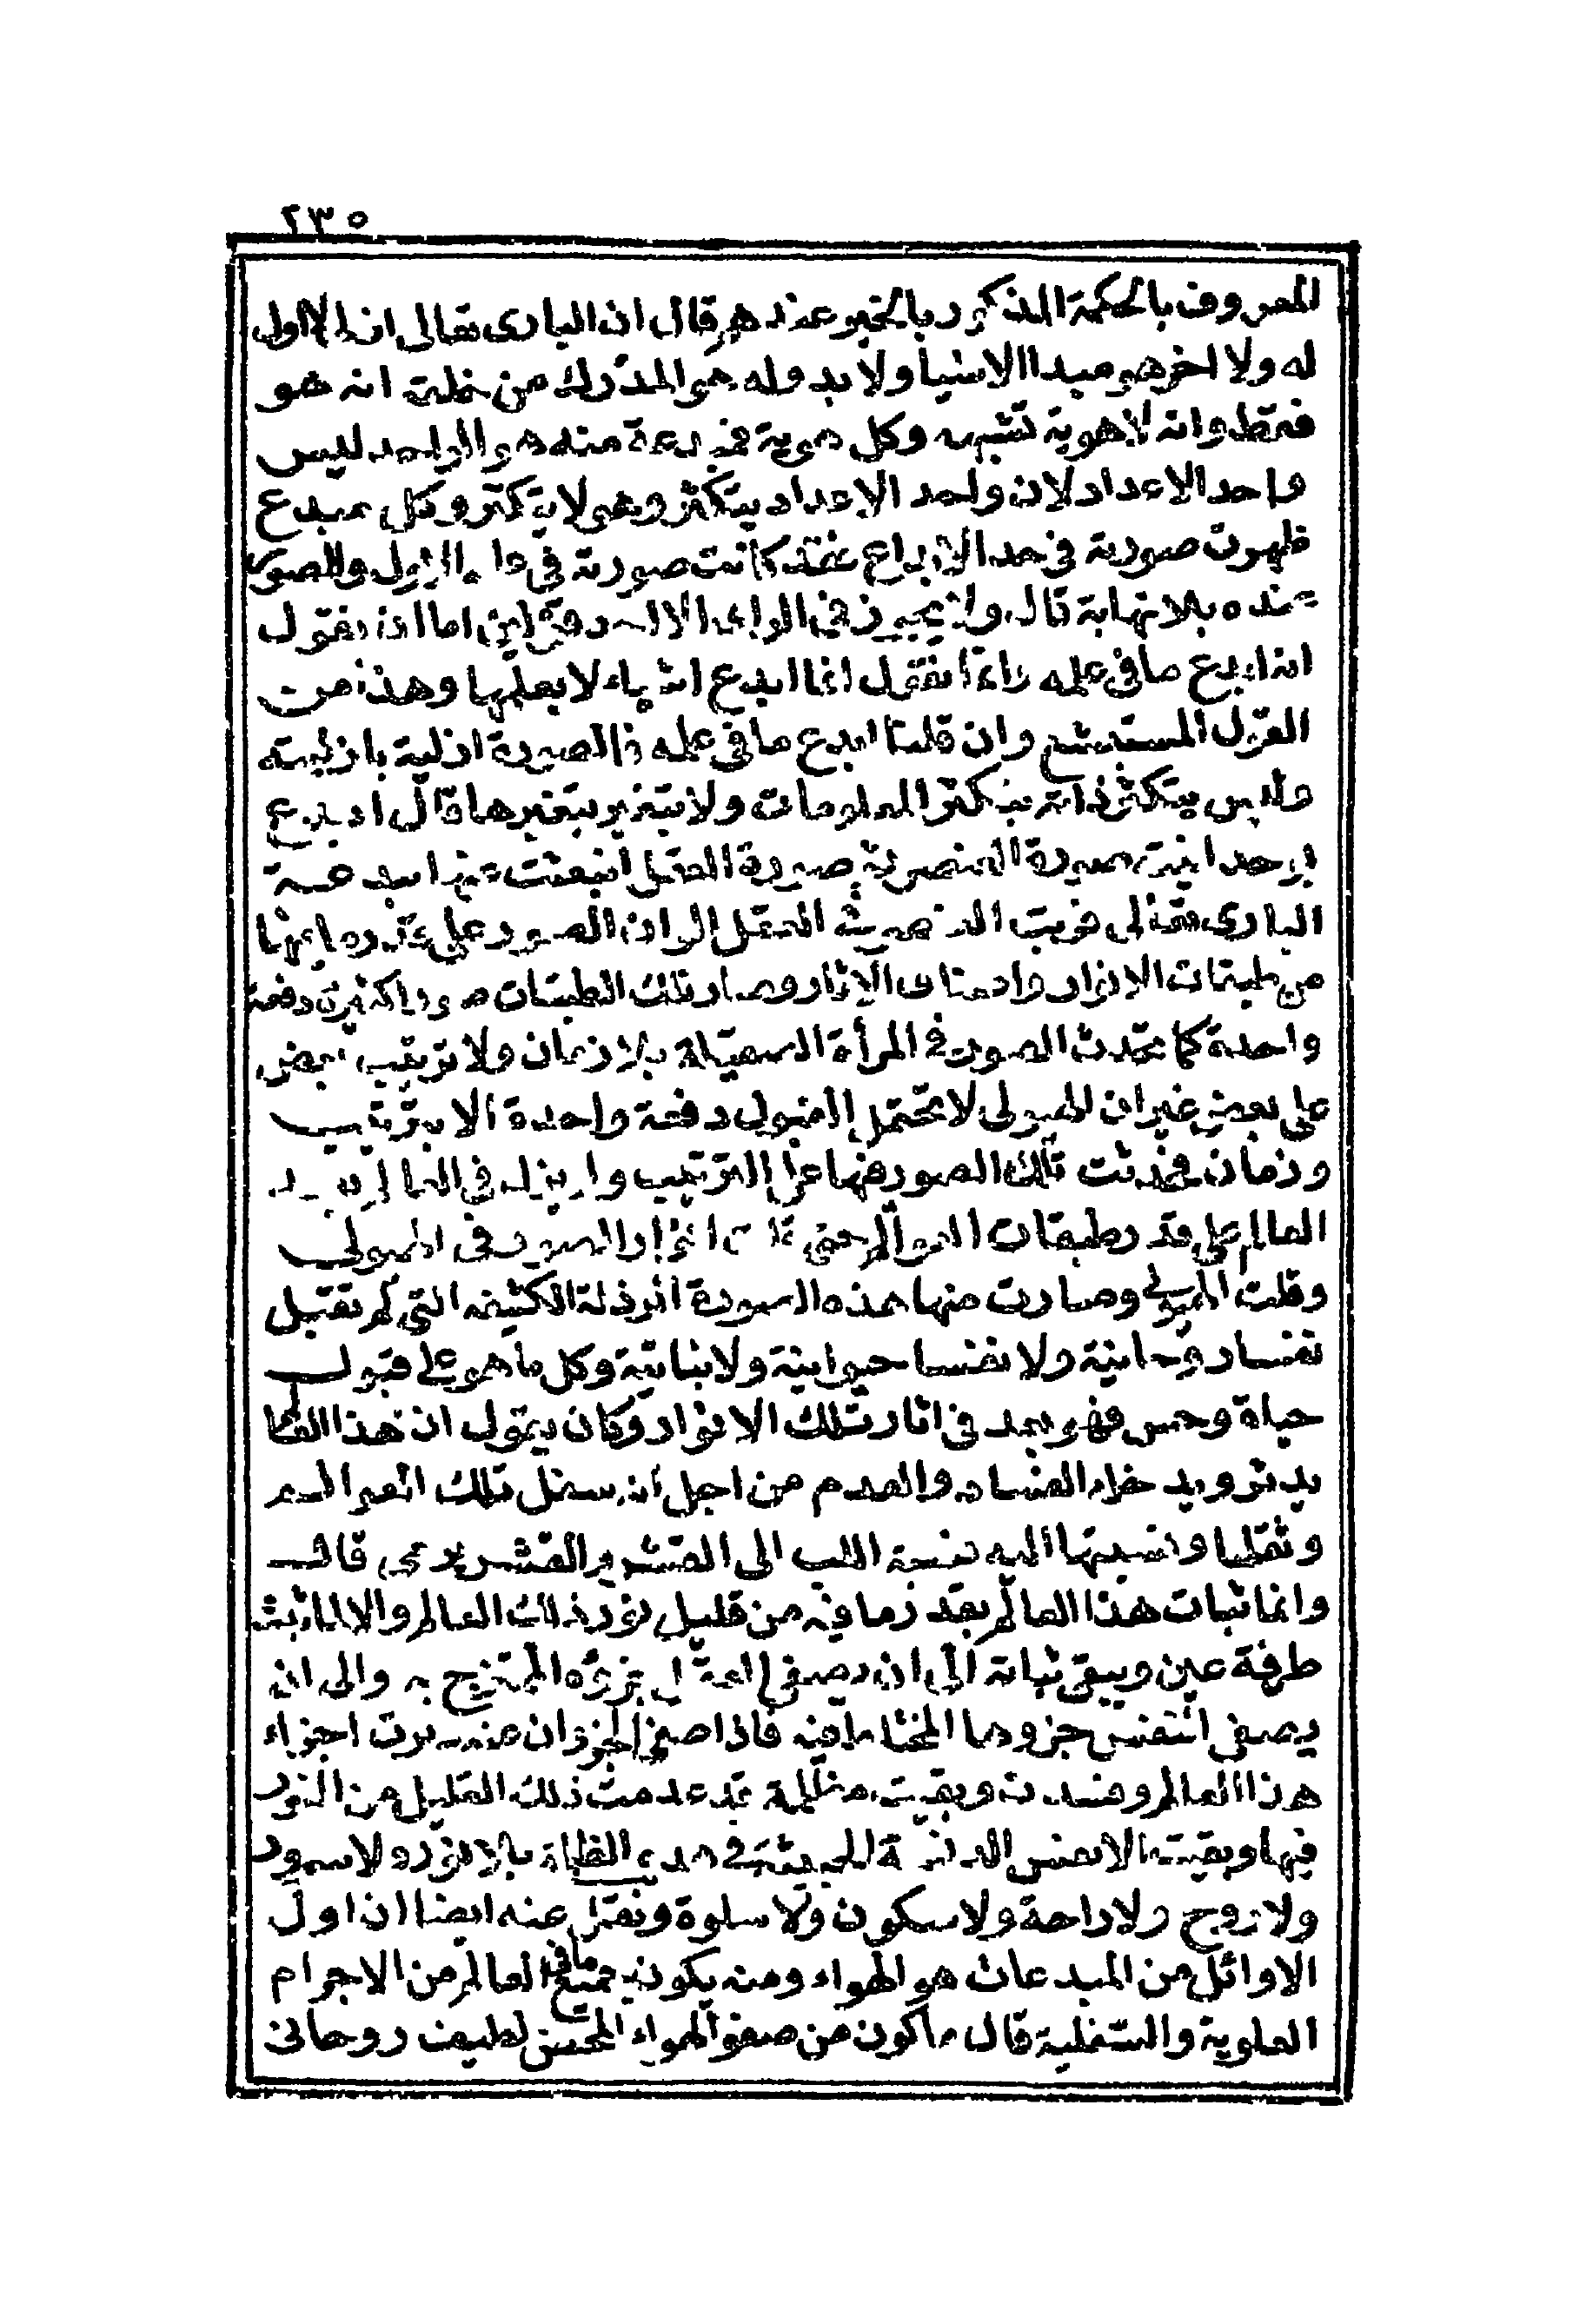 ٢٣٥
المعروف بالحكمة المذكور بالخير عندهم قال ان البارى تعالى ازلى لا اول
له ولا اخر هو مبدا الاشيا ولا بدو له هو المدرك من خلقه انه هو
فقط وانه لا هوية تشبهه وكل هوية فمبدعة منه هو الواحد ليس
واحد الاعداد لان واحد الاعداد يتكثر وهو لا يتكثر وكل مبدع
ظهرت صورته في حد الابداع فقد كانت صورته في علمه الاول والصور
عنده بلا نهاية قال ولا يجوز في الراى الا احد قولين اما ان نقول
انه ابدع ما في علمه واما ان نقول انما ابدع اشياء لا يعلمها وهذا من
القول المستبشع وان قلنا ابدع ما في علمه فالصورة ازلية بازليته
وليس يتكثر ذاته بتكثر المعلومات ولا يتغير بتغيرها قال ابدع
بوحدانيته صورة العنصر ثم صورة العقل انبعثت عنها ببدعة
البارى تعالى فرتبت العنصر في العقل الوان الصور على قدر ما فيها
من طبقات الانوار واصناف الاثار وصار تلك الطبقات صورا كثيرة دفعة
واحدة كما تحدث الصور في المرأة الصقيلة بلا زمان ولا ترتيب بعض
على بعض غير ان الهيولى لا تحتمل القبول دفعة واحدة الا بترتيب
وزمان فحدثت تلك الصور فيها على الترتيب ولم يزل في العالم بعد
العالم على قدر طبقات العوالم حتى قلت انوار الصور في الهيولى
وقلت الهيولى وصارت منها هذه الصورة الرذلة الكثيفه التي لم تقبل
نفسا روحانية ولا نفسا حيوانية ولا نباتية وكل ما هو على قبول
حياة وحس فهو بعد في اثار تلك الانوار وكان يقول ان هذا العالم
يدثر ويدخله الفساد والعدم من اجل انه سفل تلك العوالم
وثقلها ونسبتها اليه نسبة اللب الى القشر والقشر يرمى قال
وانما ثبات هذا العالم بقدر ما فيه من قليل نور ذلك العالم والا لما ثبت
طرفة عين ويبقى ثباته الى ان يصفى العقل جزؤه الممتزج به والى ان
يصفى النفس جزوها المختلط فيه فاذا صفى الجزؤان عنه دثرت اجزاء
هذا العالم وفسدت وبقيت مظلمة قد عدمت ذلك القليل من النور
فيها وبقيت الانفس الدنسة الخبيثة في هذه الظلمة بلا نور ولا سرور
ولا روح ولا راحة ولا سكون ولا سلوة ونقل عنه ايضا ان اول
الاوائل من المبدعات هو الهواء ومنه يكون جميع ما في العالم من الاجرام
العلوية والسفلية قال ما كون من صفو الهواء المحض لطيف روحانى